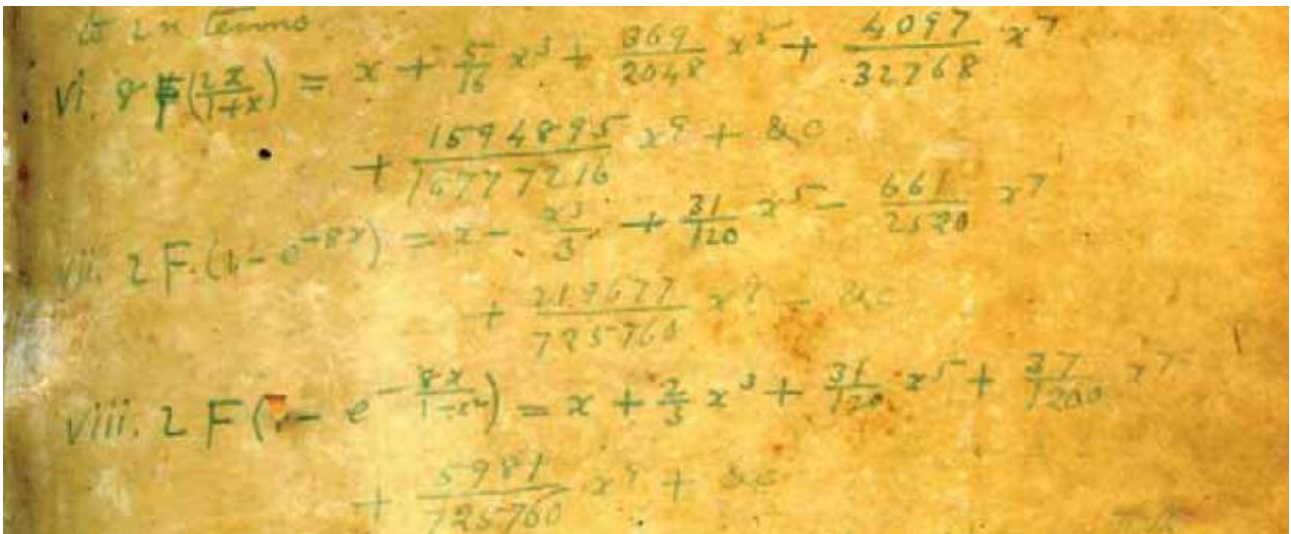 to 2n terms.
vi. 8 F(2x/(1+x)) = x + 5/16 x³ + 369/2048 x⁵ + 4097/32768 x⁷
+ 1594895/16777216 x⁹ + &c
vii. 2 F (1 - e^(-8x)) = x - x³/3 + 31/120 x⁵ - 661/2520 x⁷
+ 219677/725760 x⁹ - &c
viii. 2 F (1 - e^(-8x/(1-x²))) = x + 2/3 x³ + 31/120 x⁵ + 37/1260 x⁷
+ 5981/725760 x⁹ + &c